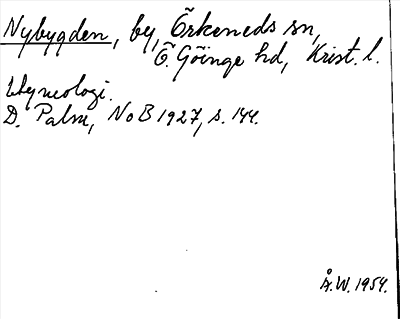 Nybygden, by, Örkeneds sn,
Ö. Göinge hd, Krist. l.
Etymologi.
D. Palm, NoB 1927, s. 144.
Å.W. 1954.